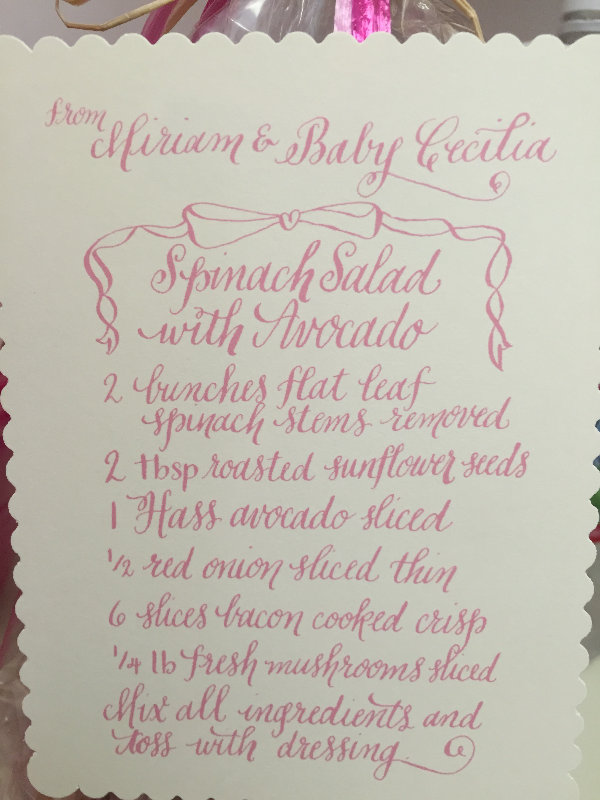 from Miriam & Baby Cecilia
Spinach Salad
with Avocado
2 bunches flat leaf
spinach stems removed
2 tbsp roasted sunflower seeds
1 Hass avocado sliced
1/2 red onion sliced thin
6 slices bacon cooked crisp
1/4 lb fresh mushrooms sliced
Mix all ingredients and
toss with dressing